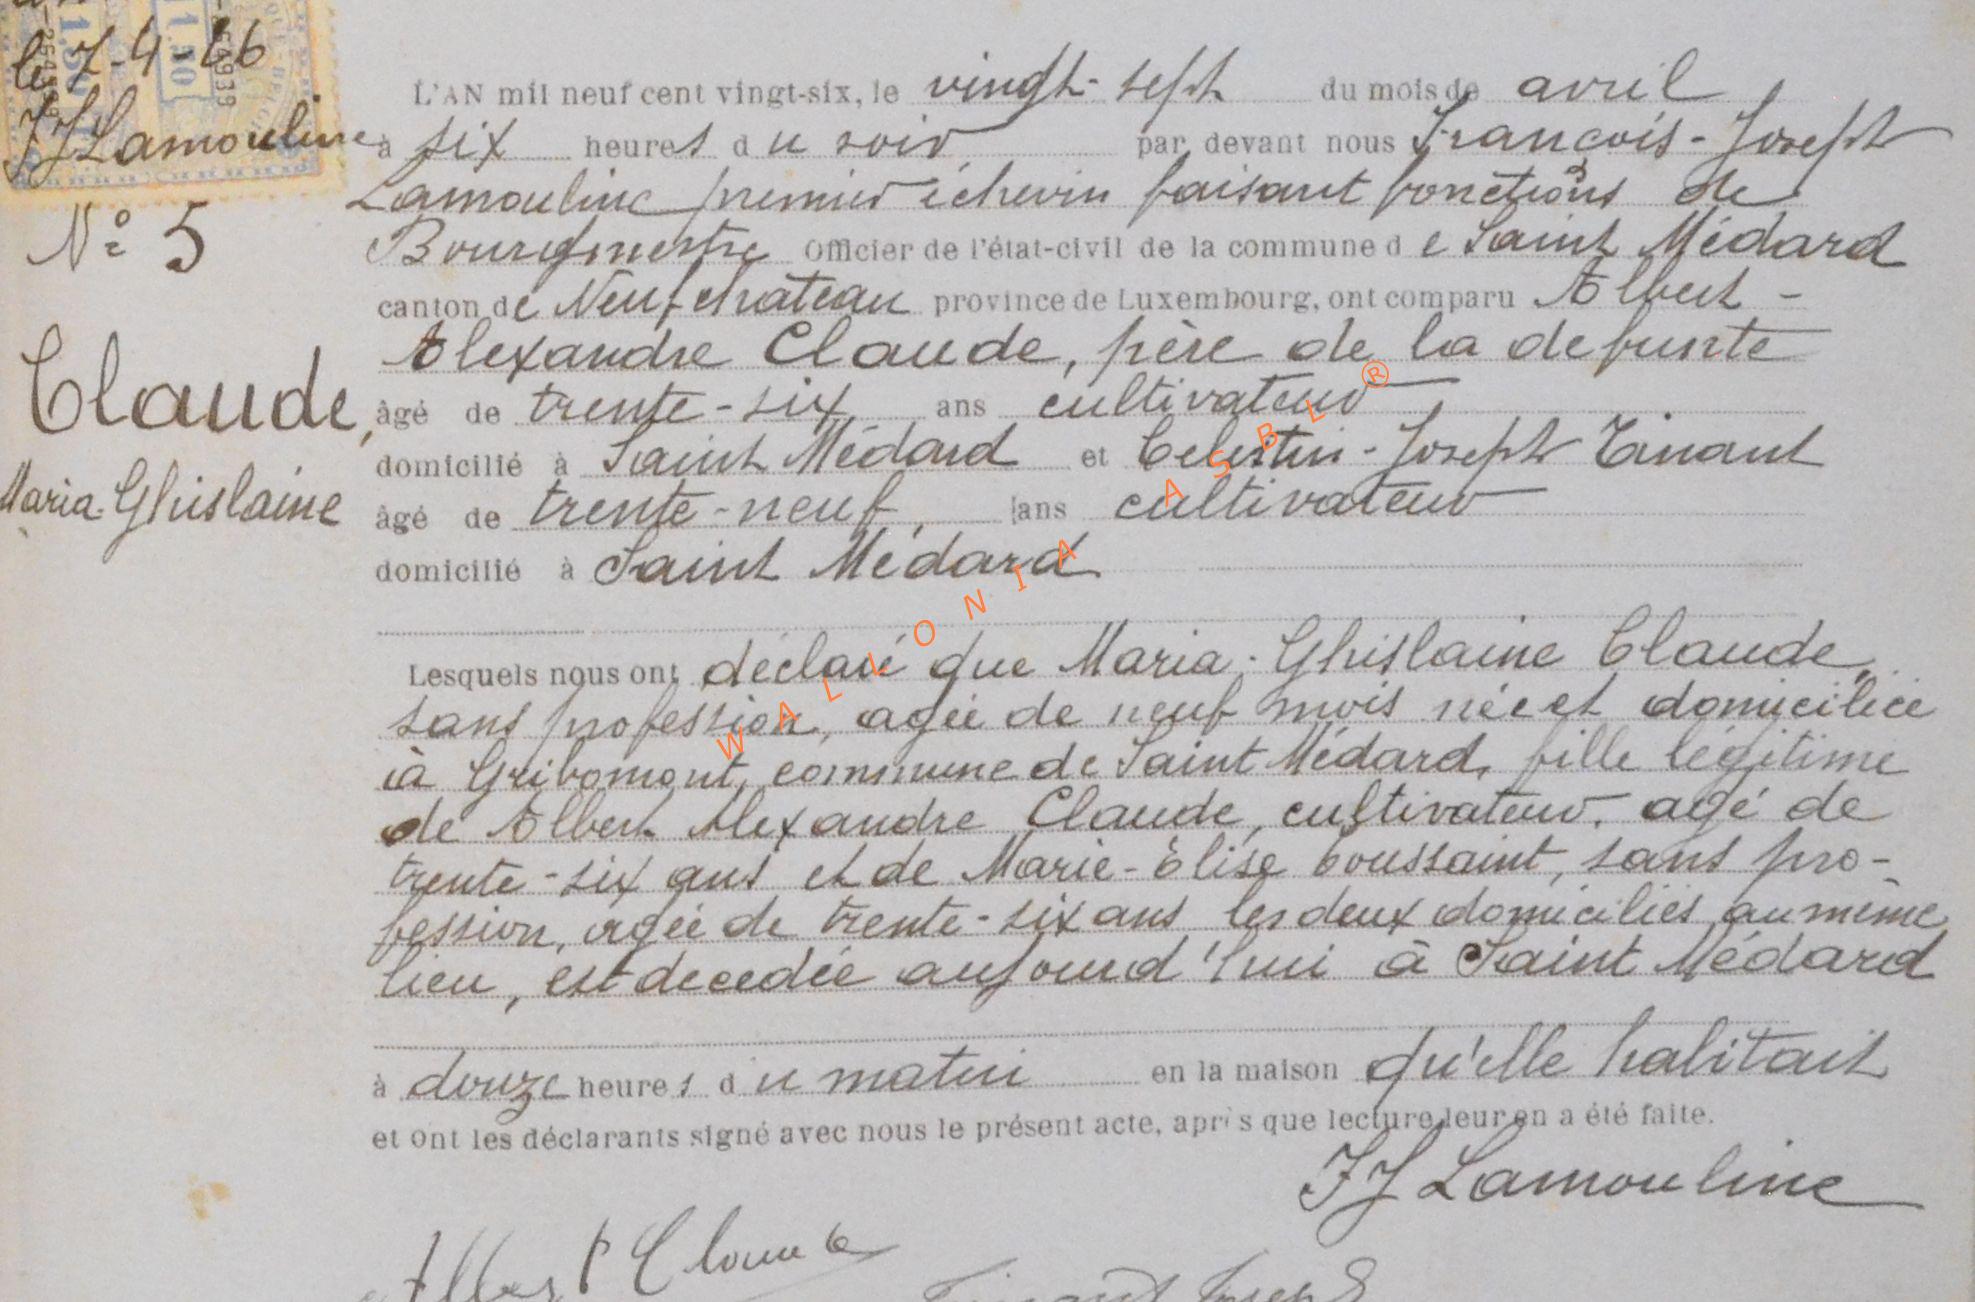 le 7-4-26
FJ Lamouline
N° 5
Claude,
Maria-Ghislaine
L'AN mil neuf cent vingt-six, le vingt-sept du mois de avril
à six heures du soir par devant nous François-Joseph
Lamouline premier échevin faisant fonctions de
Bourgmestre Officier de l'état-civil de la commune de Saint Médard
canton de Neufchateau province de Luxembourg, ont comparu Albert-
Alexandre Claude, père de la defunte
âgé de trente-six ans cultivateur
domicilié à Saint Médard et Celestin-Joseph Tinant
âgé de trente-neuf, ans cultivateur
domicilié à Saint Médard
Lesquels nous ont déclaré que Maria-Ghislaine Claude,
sans profession, agée de neuf mois née et domiciliée
à Gribomont, commune de Saint Médard, fille légitime
de Albert Alexandre Claude, cultivateur, agé de
trente-six ans et de Marie-Elise Toussaint, sans pro-
fession, agée de trente-six ans les deux domiciliés au même
lieu, est decedée aujourd'hui à Saint Médard
à douze heures du matin en la maison qu'elle habitait
et ont les déclarants signé avec nous le présent acte, après que lecture leur en a été faite.
FJ Lamouline
Albert Claude
Tinant Joseph
WALLONIA ASBL ®